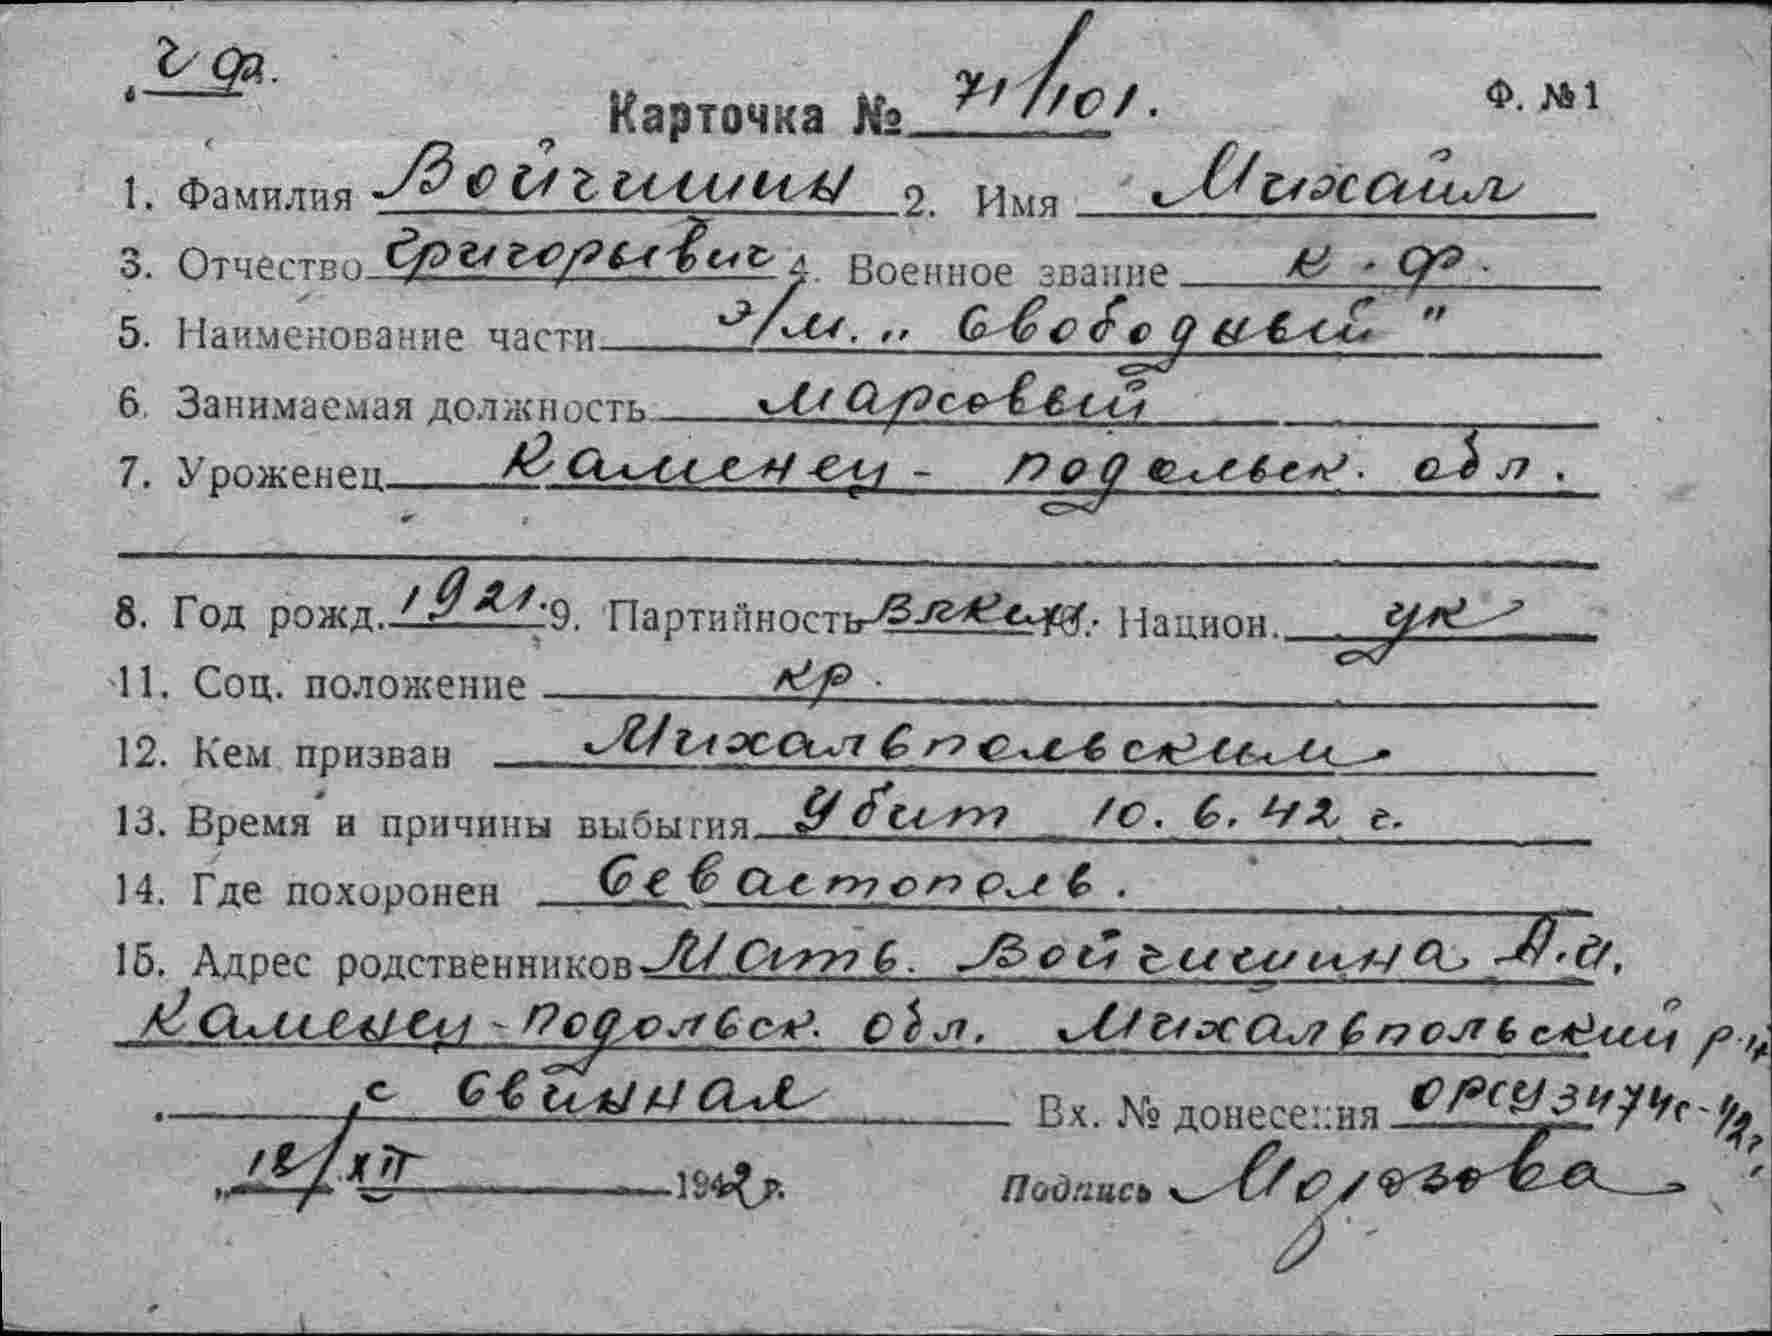 ч ф.
Карточка № 71/101. Ф. №1
1. Фамилия Войчишин 2. Имя Михаил
3. Отчество Григорьевич 4. Военное звание к.ф.
5. Наименование части э/м. „Свободный"
6. Занимаемая должность марсовый
7. Уроженец Каменец-подольск. обл.
8. Год рожд. 1921. 9. Партийность ВЛКСМ 10. Национ. ук
11. Соц. положение кр.
12. Кем призван Михальпольским
13. Время и причины выбытия Убит 10.6.42 г.
14. Где похоронен Севастополь.
15. Адрес родственников Мать. Войчишина А.И.
Каменец-подольск. обл. Михальпольский р-н
с Свинная Вх. № донесения ОРСУ 3474с-42г.
„12/XII 1942 г. Подпись Морозова